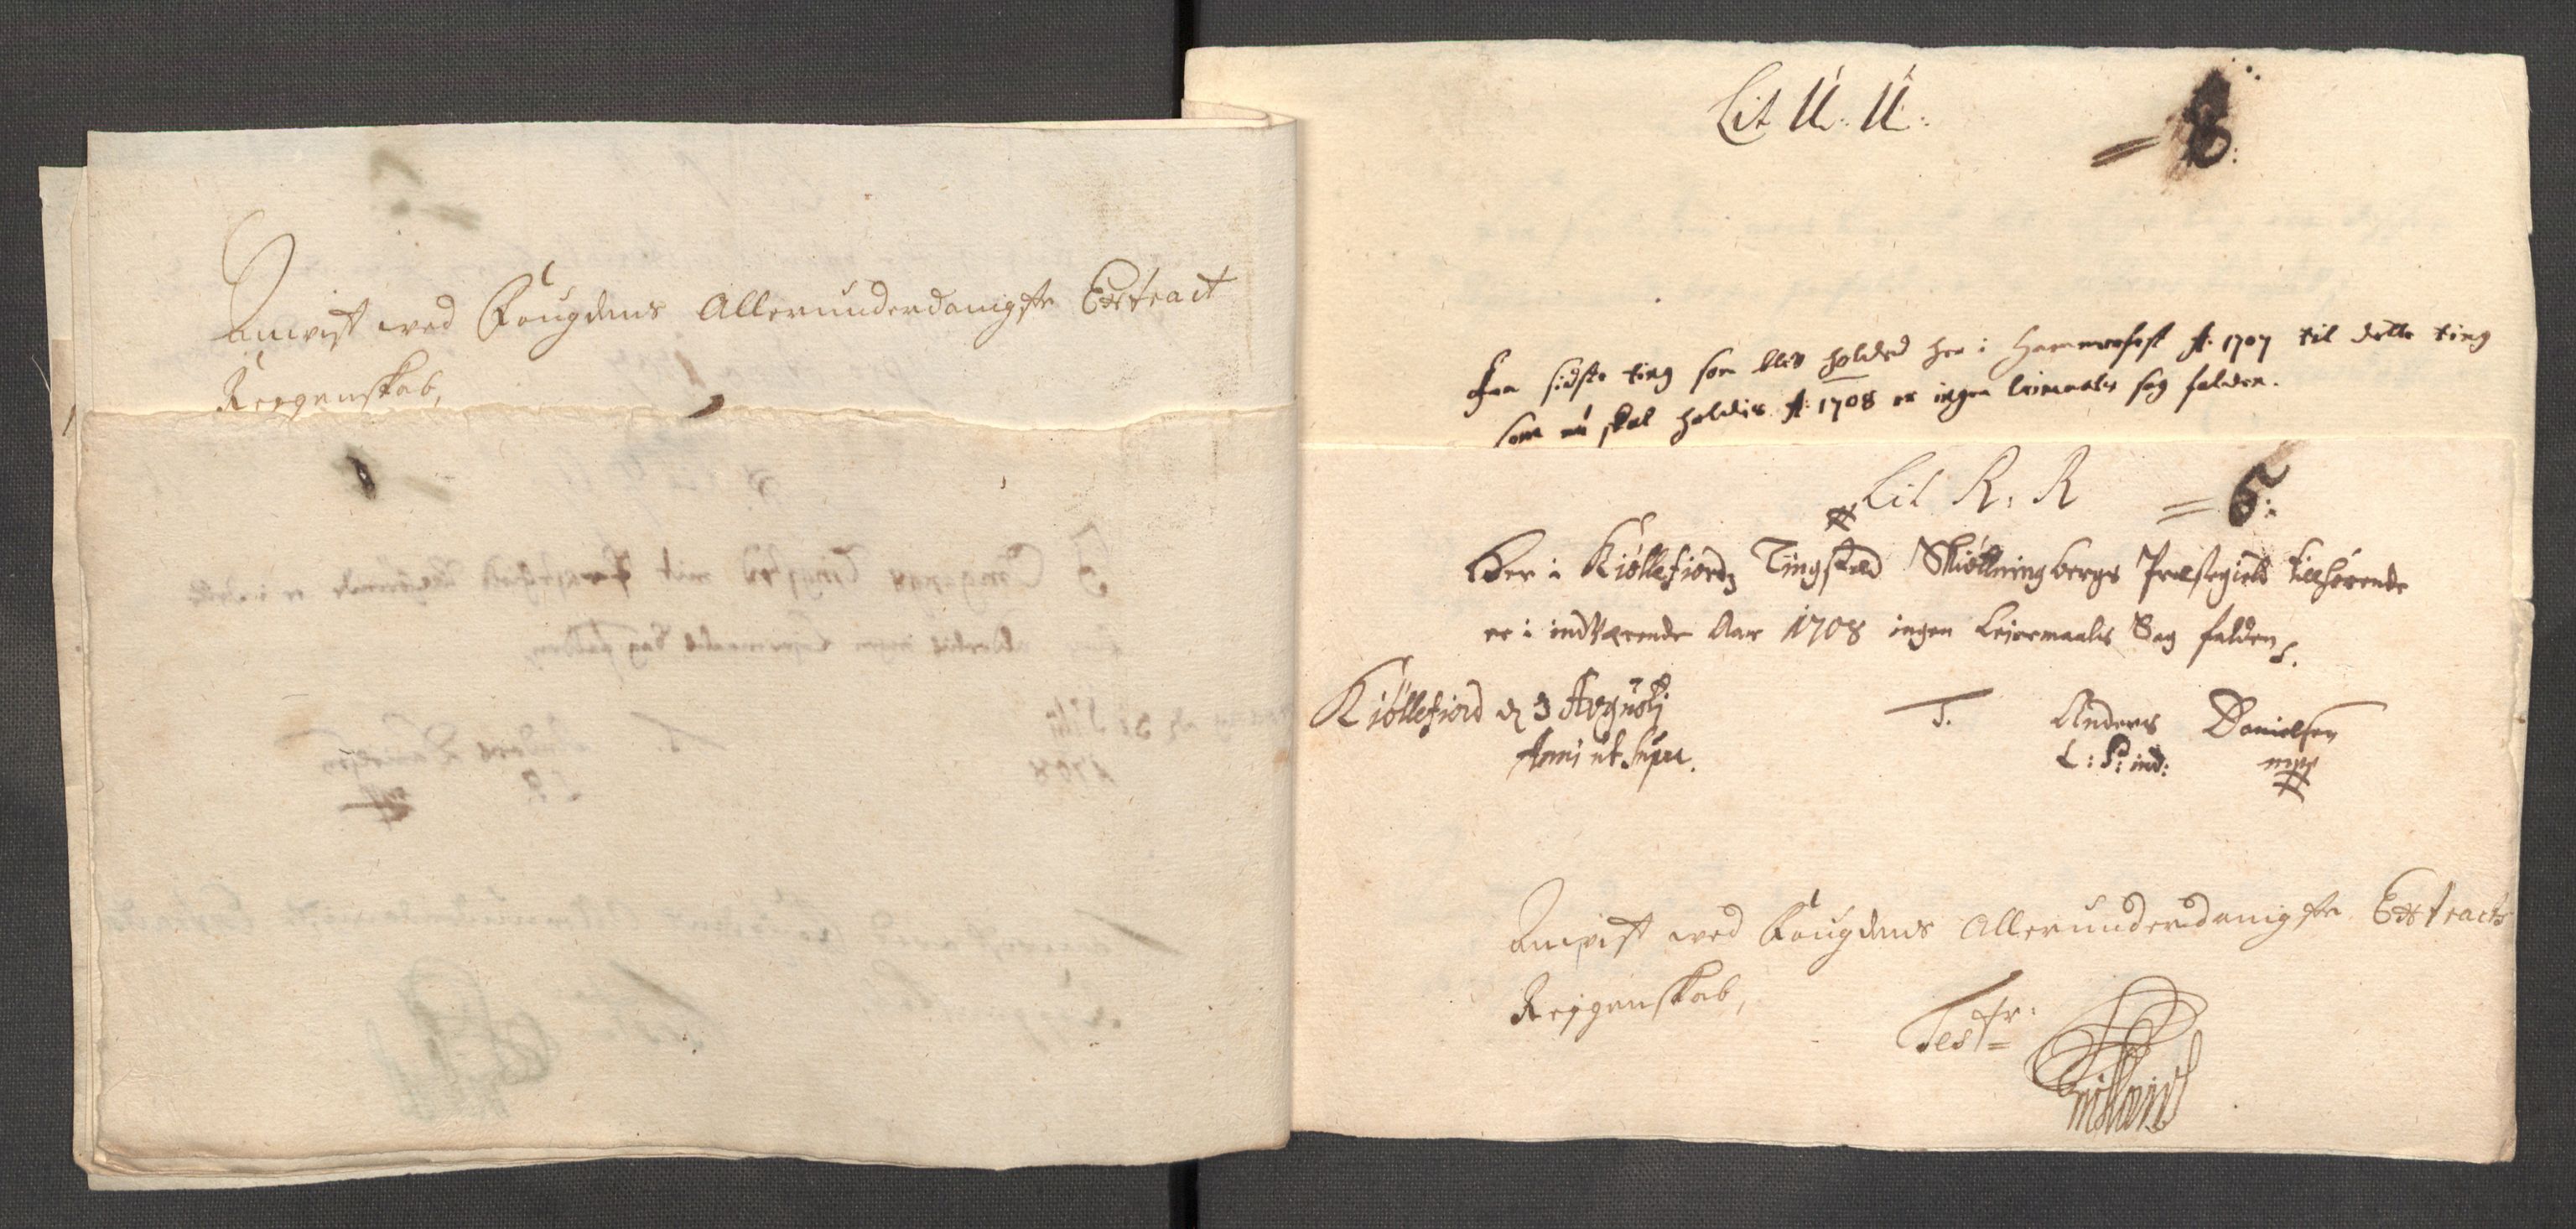 Anvist ved Fougdens Allerunderdanigste Extract
Regenskab,
Lit U: U:
Fra sidste ting som blev holded her i Hammerfest A: 1707 til dette ting
som nu skal holdis A: 1708 er ingen leiermaals sag falden.
Lit R: R = 6:
Her i Kiøllefiords Tingsted Skiøttningbergs Præstegield tilhørende
er i indværende Aar 1708 ingen Leiermaals Sag falden
Kiøllefiord d 3 Augustj
Anni ut supra.
T. Anders Danielsen
L: P: ind: mpp
Anvist ved Fougdens Allerunderdanigste Extracts
Regenskab,
Test